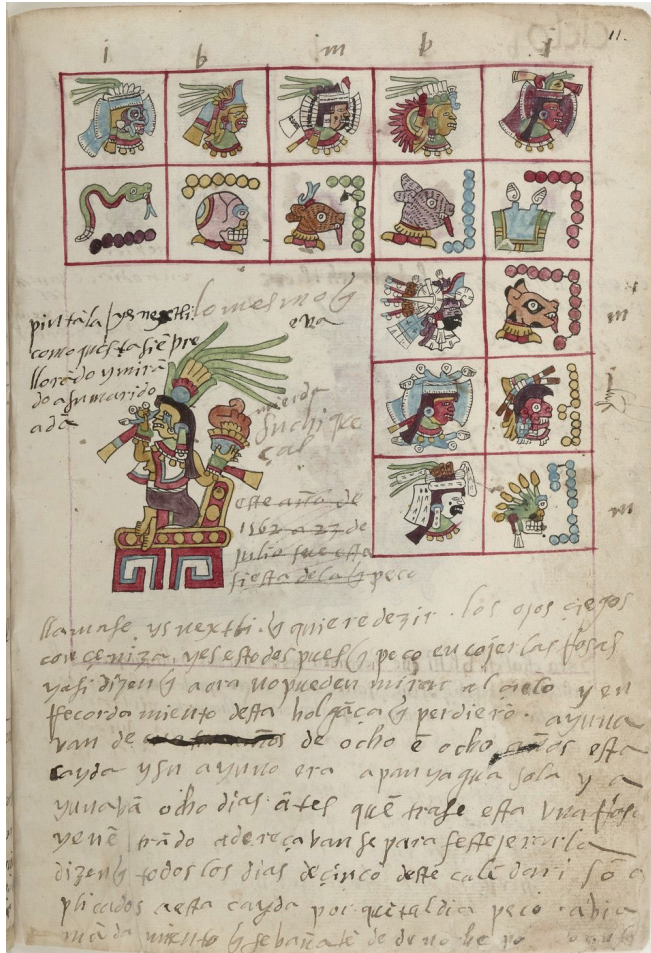 11.
i b m b i
lo mesmo q
eva
pintala / ysnextli.
como questa sienpre
llorādo y mirā
do a su marido
adā
mierda
Suchi que
çal
este año de
1562 a 27 de
julio fue esta
fiesta de la q peco
m
m
llamase ysnextli. q quiere dezir. los ojos çiegos
con çeniza y es esto despues q peco en cojer las rosas
y asi dizen q aora no pueden mirar al çielo y en
recordamiento desta holgāça q perdierō. ayuna
van de de ocho ē ocho años esta
cayda y su ayuno era a pan y agua sola y a
yunavā ocho dias ātes quē trase esta vna rosa
y enē trādo adereçavan se para festejarla
dizen q todos los dias de çinco deste calēdari sō a
plicados a esta cayda por que tal dia peco. abia